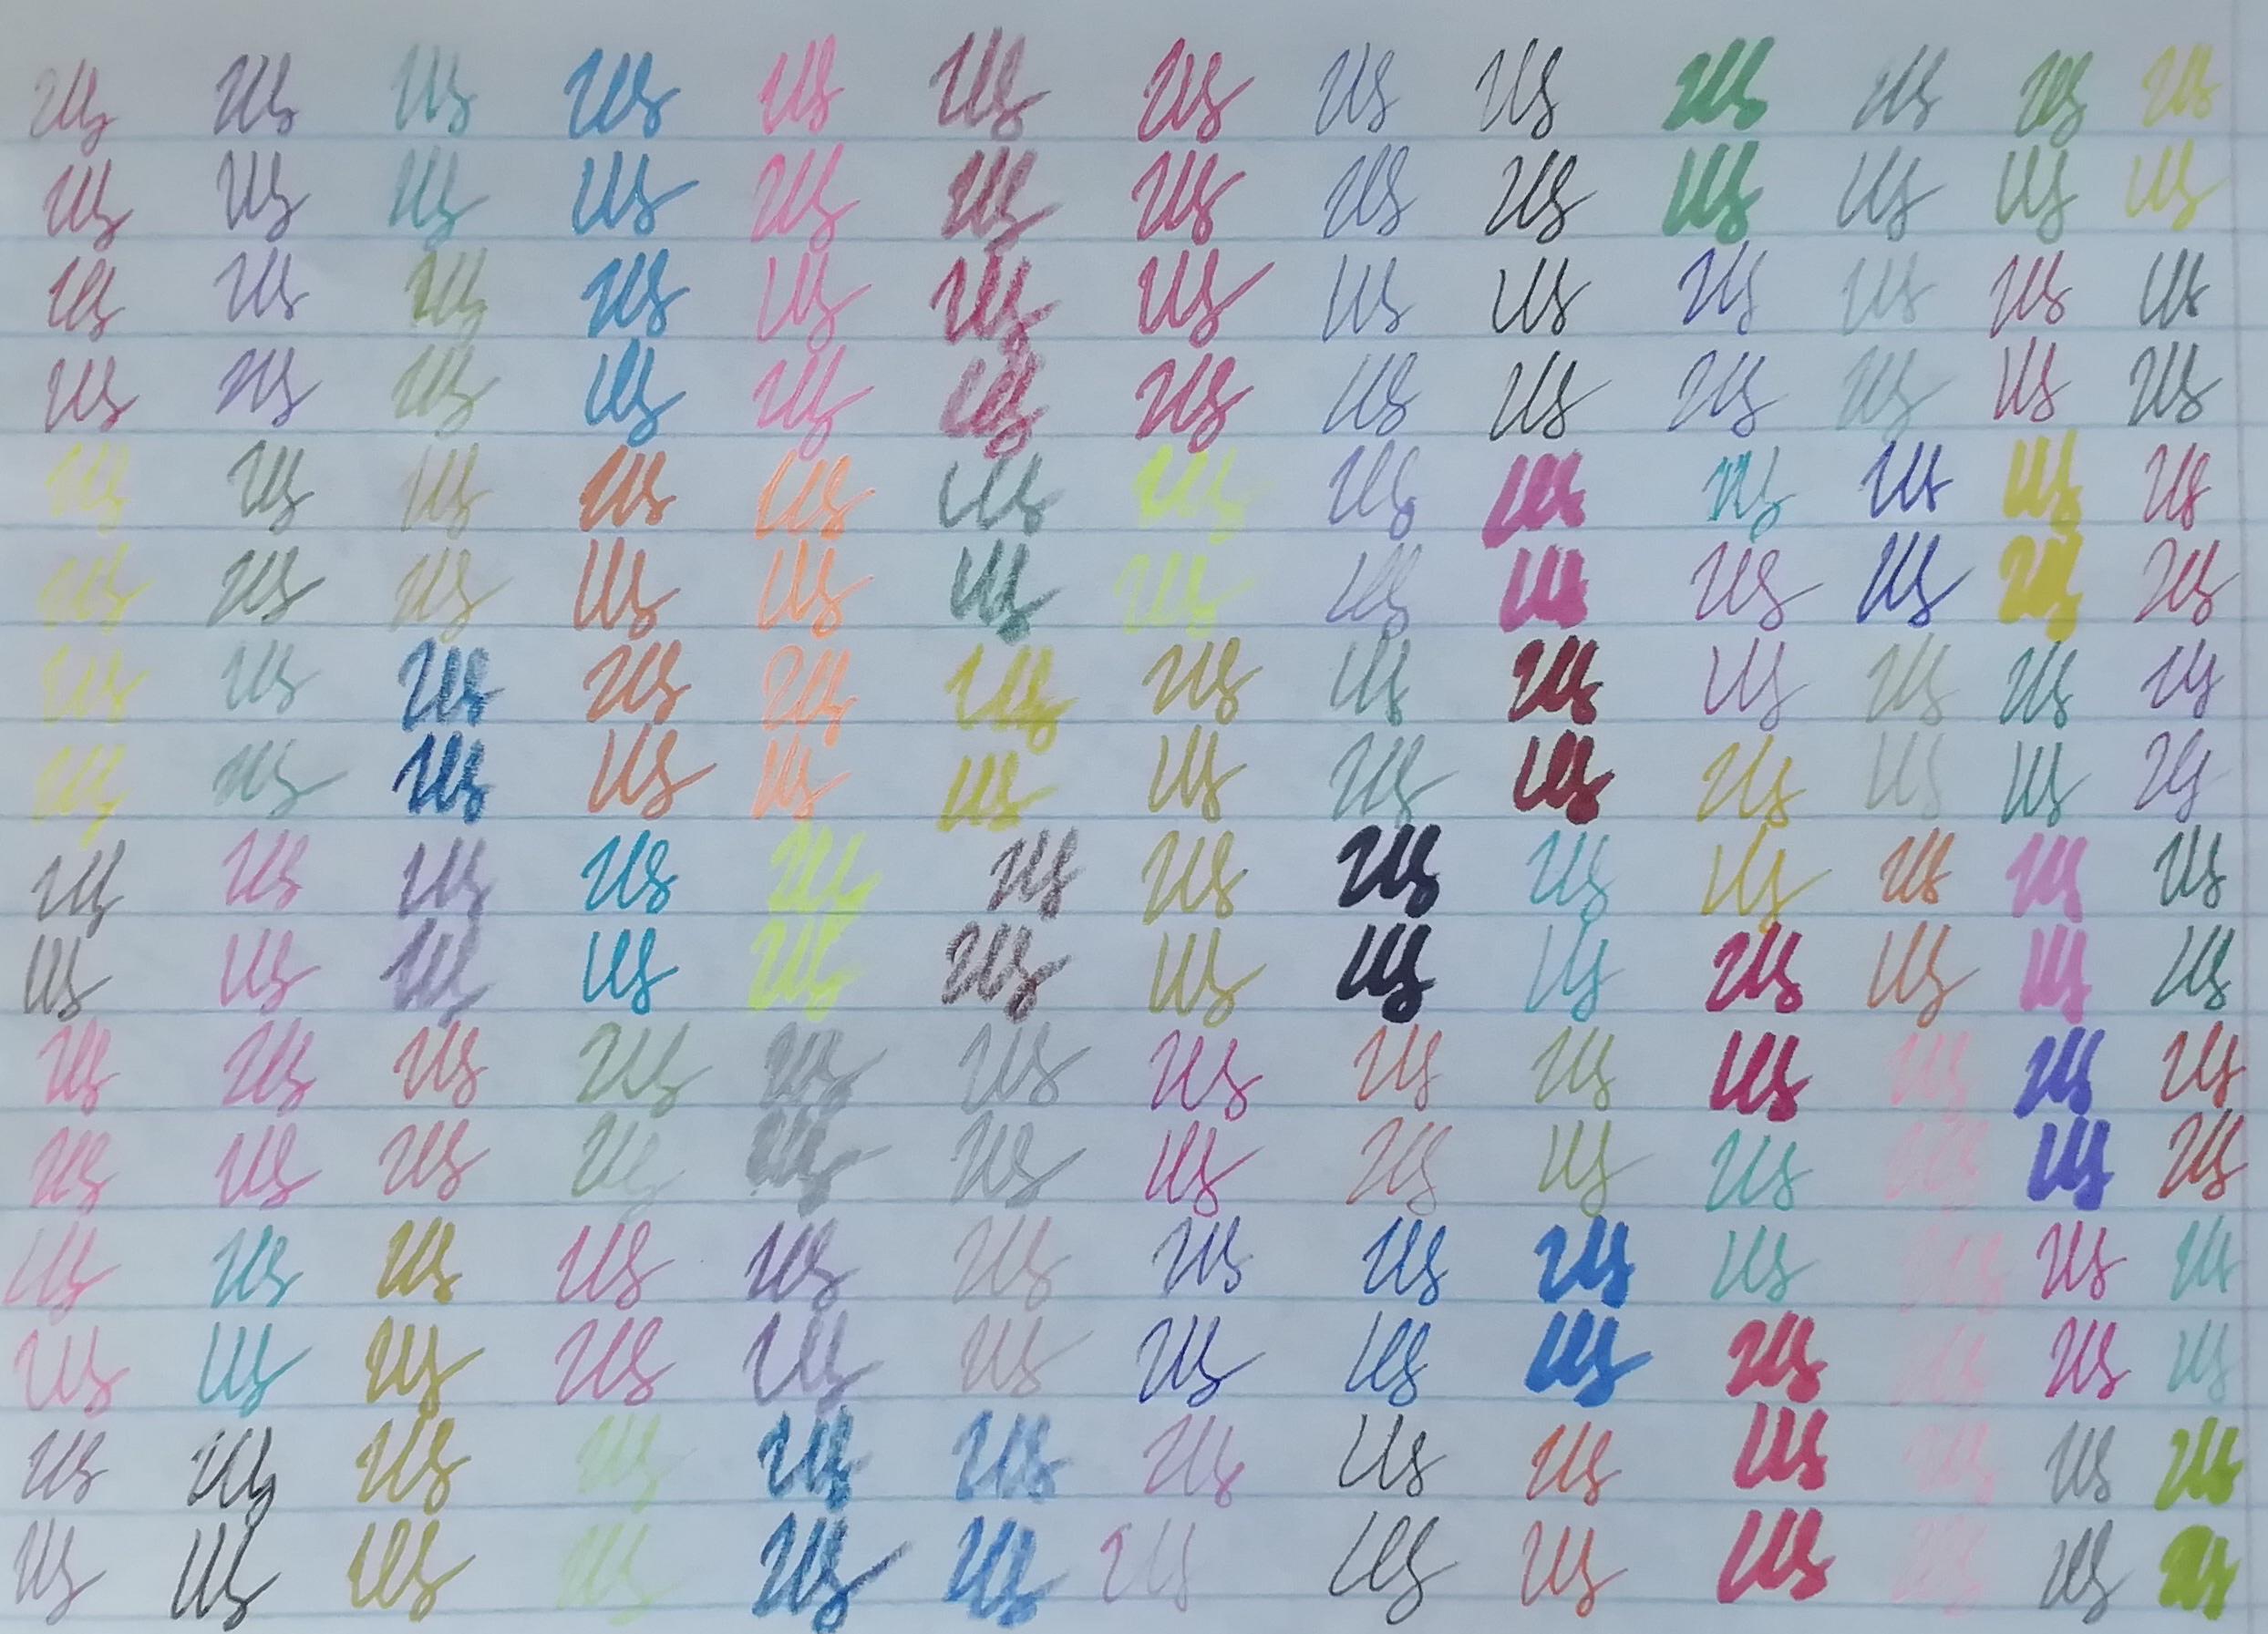 Us Us Us Us Us Us Us Us Us Us Us Us Us
Us Us Us Us Us Us Us Us Us Us Us Us Us
Us Us Us Us Us Us Us Us Us Us Us Us Us
Us Us Us Us Us Us Us Us Us Us Us Us Us
Us Us Us Us Us Us Us Us Us Us Us Us Us
Us Us Us Us Us Us Us Us Us Us Us Us Us
Us Us Us Us Us Us Us Us Us Us Us Us Us
Us Us Us Us Us Us Us Us Us Us Us Us Us
Us Us Us Us Us Us Us Us Us Us Us Us Us
Us Us Us Us Us Us Us Us Us Us Us Us Us
Us Us Us Us Us Us Us Us Us Us Us Us Us
Us Us Us Us Us Us Us Us Us Us Us Us Us
Us Us Us Us Us Us Us Us Us Us Us Us Us
Us Us Us Us Us Us Us Us Us Us Us Us Us
Us Us Us Us Us Us Us Us Us Us Us Us Us
Us Us Us Us Us Us Us Us Us Us Us Us Us